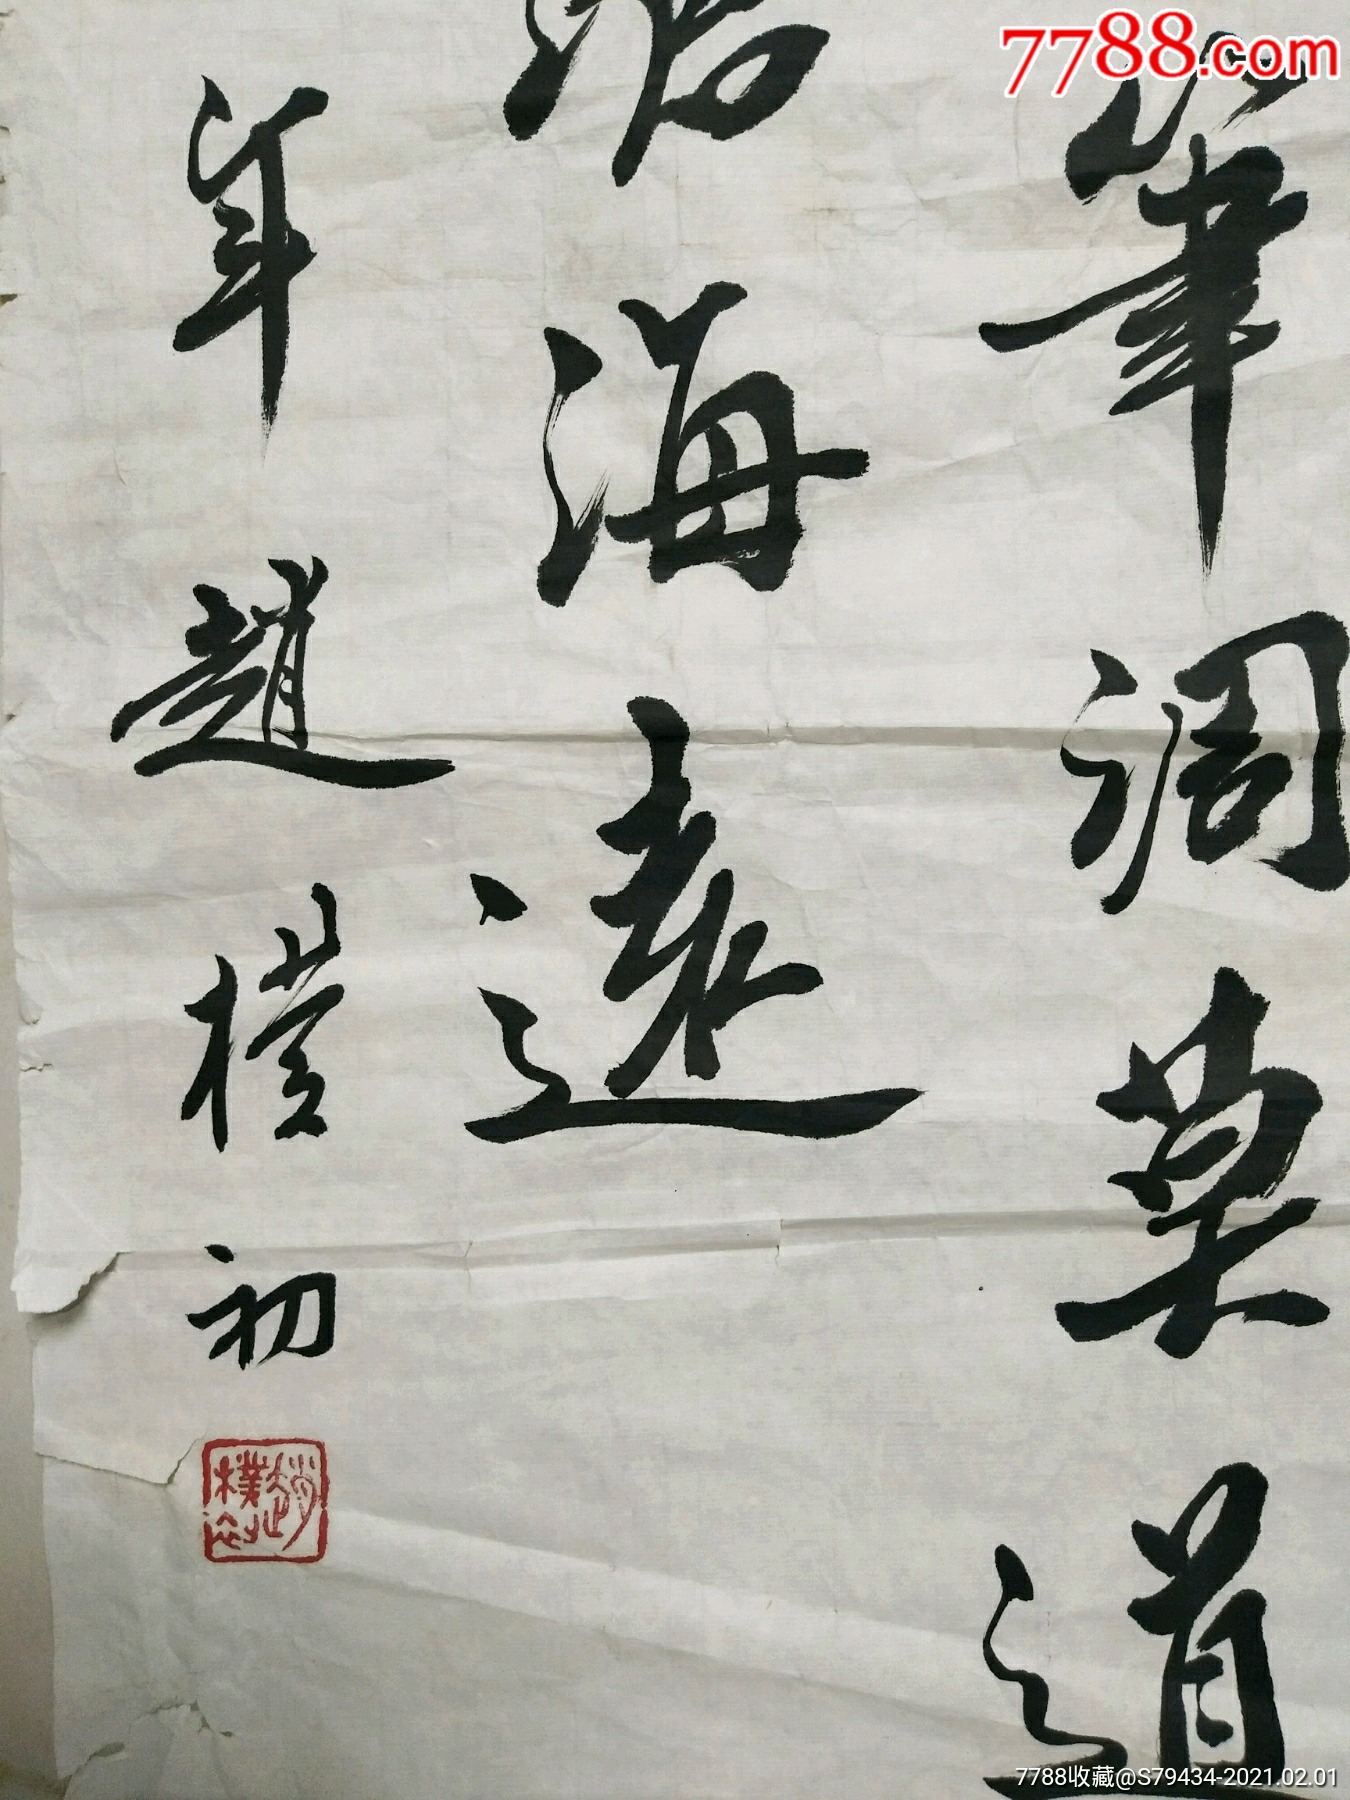 7788.com
筆調道
海遠
年趙樸初
趙樸初
7788收藏@S79434-2021.02.01